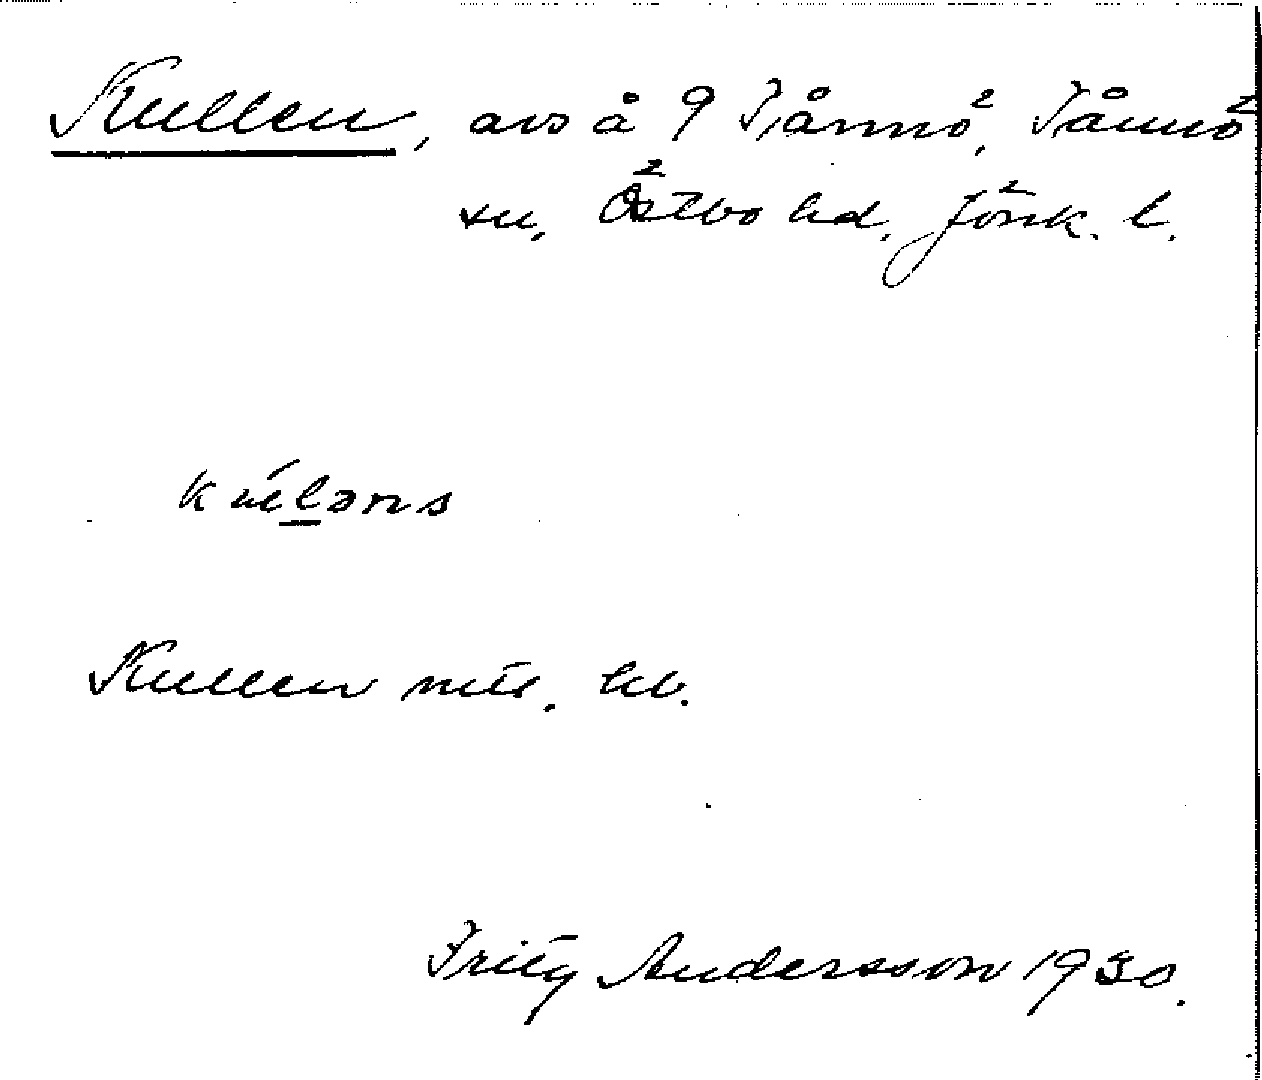 Kullen, avs å 9 Tånnö, Tånnö
sn, Östbo hd, Jönk. l.
kúl̲əns
Kullen mtl. hb.
Fritz Andersson 1930.